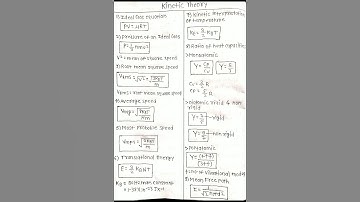 Kinetic Theory
1) Ideal Gas equation
PV = μRT
2) Pressure of an Ideal Gas
P = 1/3 mnv²
V² = mean of square speed
3) Root mean square speed
Vrms = √V² = √3KBT/m
Vrms = root mean square speed
4) Average speed
5) Most Probable Speed
6) Translational Energy
E = 3/2 KBNT
KB = Boltzman Constant
7) Kinetic Interpretation of temperature
KE = 3/2 KBT
8) Ratio of heat capacities
γ = Cp/Cv
Cv = 3/2 R
Cp = 5/2 R
Diatomic rigid & non rigid
γ = 7/5 → rigid
γ = 9/7 → non rigid
Polyatomic
γ = (4+f)/(3+f)
f = no of vibrational mode
Mean Free Path